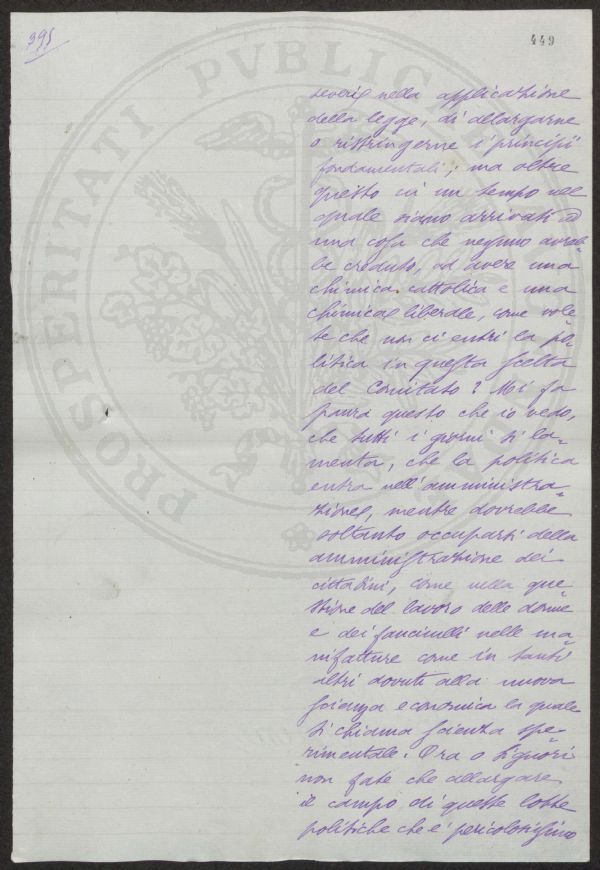 395
449
severi nella applicazione
della legge, di allargarne
o ristringerne i principii
fondamentali; ma oltre
questo in un tempo nel
quale siamo arrivati ad
una cosa che nessuno avreb=
be creduto, ad avere una
chimica cattolica e una
chimica liberale, come vole=
te che non ci entri la po=
litica in questa scelta
del Comitato? Mi fa
paura questo che io vedo,
che tutti i giorni si la=
menta, che la politica
entra nell'amministra=
zione, mentre dovrebbe
soltanto occuparsi della
amministrazione dei
cittadini, come nella que=
stione del lavoro delle donne
e dei fanciulli nelle ma=
nifatture come in tanti
altri dovuti alla nuova
scienza economica la quale
si chiama scienza spe=
rimentale. Ora o Signori
non fate che allargare
il campo di queste lotte
politiche che è pericolosissimo
PROSPERITATI PVBLICAE